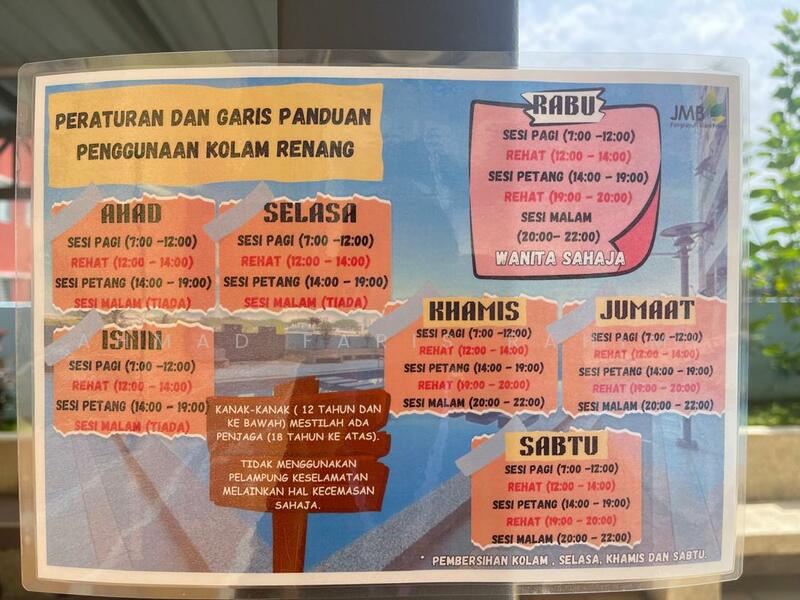 PERATURAN DAN GARIS PANDUAN
PENGGUNAAN KOLAM RENANG
AHAD
SESI PAGI (7:00 -12:00)
REHAT (12:00 - 14:00)
SESI PETANG (14:00 - 19:00)
SESI MALAM (TIADA)
SELASA
SESI PAGI (7:00 -12:00)
REHAT (12:00 - 14:00)
SESI PETANG (14:00 - 19:00)
SESI MALAM (TIADA)
ISNIN
SESI PAGI (7:00 -12:00)
REHAT (12:00 - 14:00)
SESI PETANG (14:00 - 19:00)
SESI MALAM (TIADA)
RABU
SESI PAGI (7:00 -12:00)
REHAT (12:00 - 14:00)
SESI PETANG (14:00 - 19:00)
REHAT (19:00 - 20:00)
SESI MALAM
(20:00- 22:00)
WANITA SAHAJA
JMB
KHAMIS
SESI PAGI (7:00 -12:00)
REHAT (12:00 - 14:00)
SESI PETANG (14:00 - 19:00)
REHAT (19:00 - 20:00)
SESI MALAM (20:00 - 22:00)
JUMAAT
SESI PAGI (7:00 -12:00)
REHAT (12:00 - 14:00)
SESI PETANG (14:00 - 19:00)
REHAT (19:00 - 20:00)
SESI MALAM (20:00 - 22:00)
KANAK-KANAK ( 12 TAHUN DAN
KE BAWAH) MESTILAH ADA
PENJAGA (18 TAHUN KE ATAS).
TIDAK MENGGUNAKAN
PELAMPUNG KESELAMATAN
MELAINKAN HAL KECEMASAN
SAHAJA.
SABTU
SESI PAGI (7:00 -12:00)
REHAT (12:00 - 14:00)
SESI PETANG (14:00 - 19:00)
REHAT (19:00 - 20:00)
SESI MALAM (20:00 - 22:00)
* PEMBERSIHAN KOLAM , SELASA, KHAMIS DAN SABTU.